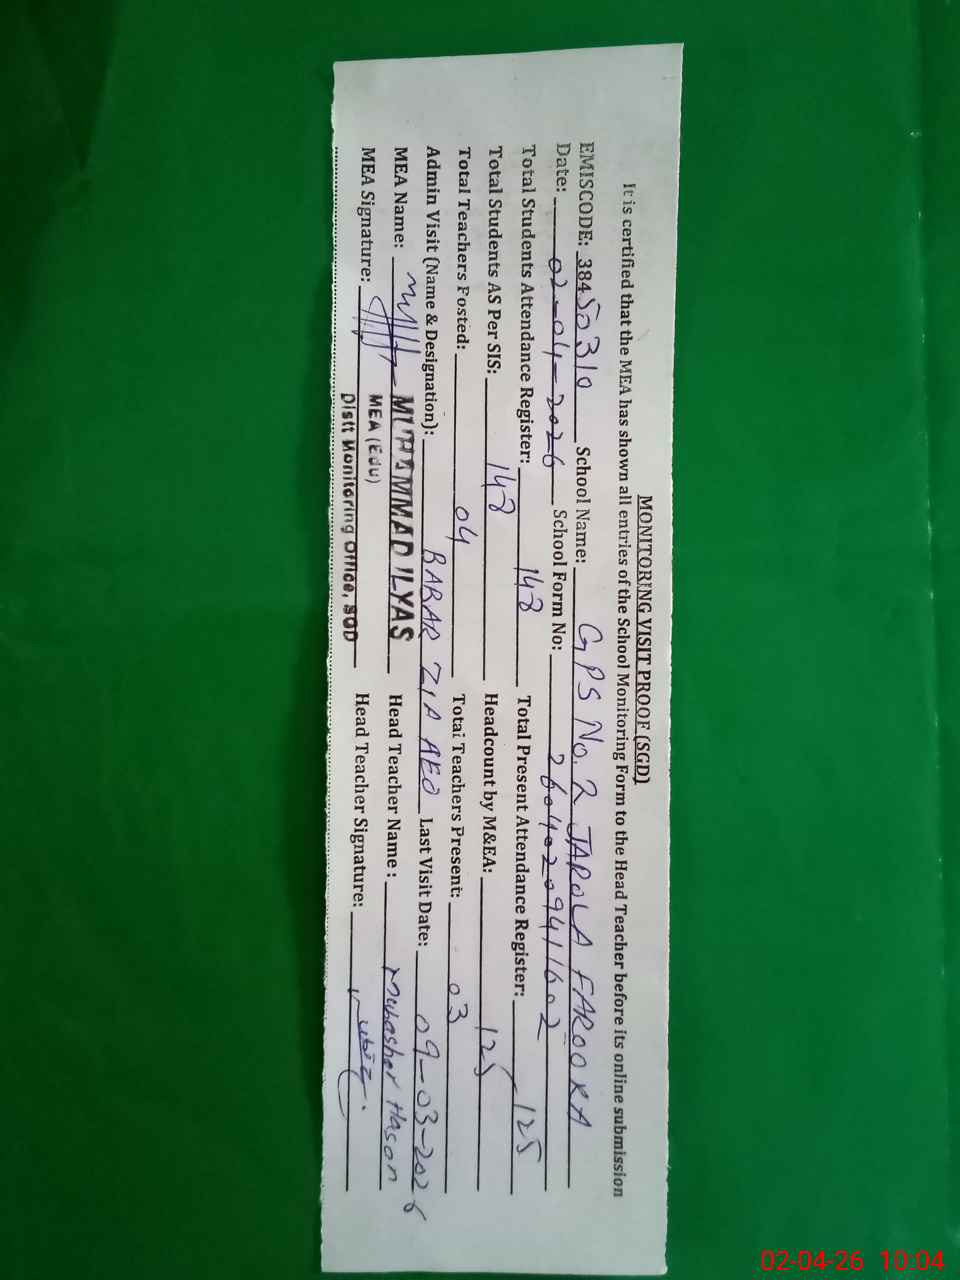 MONITORING VISIT PROOF (SGD)
It is certified that the MEA has shown all entries of the School Monitoring Form to the Head Teacher before its online submission
EMISCODE: 38450310 School Name: GPS No. 2 JAROLA FAROOKA
Date: 02-04-2026 School Form No: 2604020941602
Total Students Attendance Register: 148 Total Present Attendance Register: 125
Total Students AS Per SIS: 148 Headcount by M&EA: 125
Total Teachers Posted: 04 Total Teachers Present: 03
Admin Visit (Name & Designation): BABAR ZIA AEO Last Visit Date: 09-03-2026
MEA Name: MUHAMMAD ILYAS Head Teacher Name : Mubasher Hasan
MEA Signature: MEA (EDU) Head Teacher Signature:
Distt Monitoring Office, SGD
02-04-26 10:04